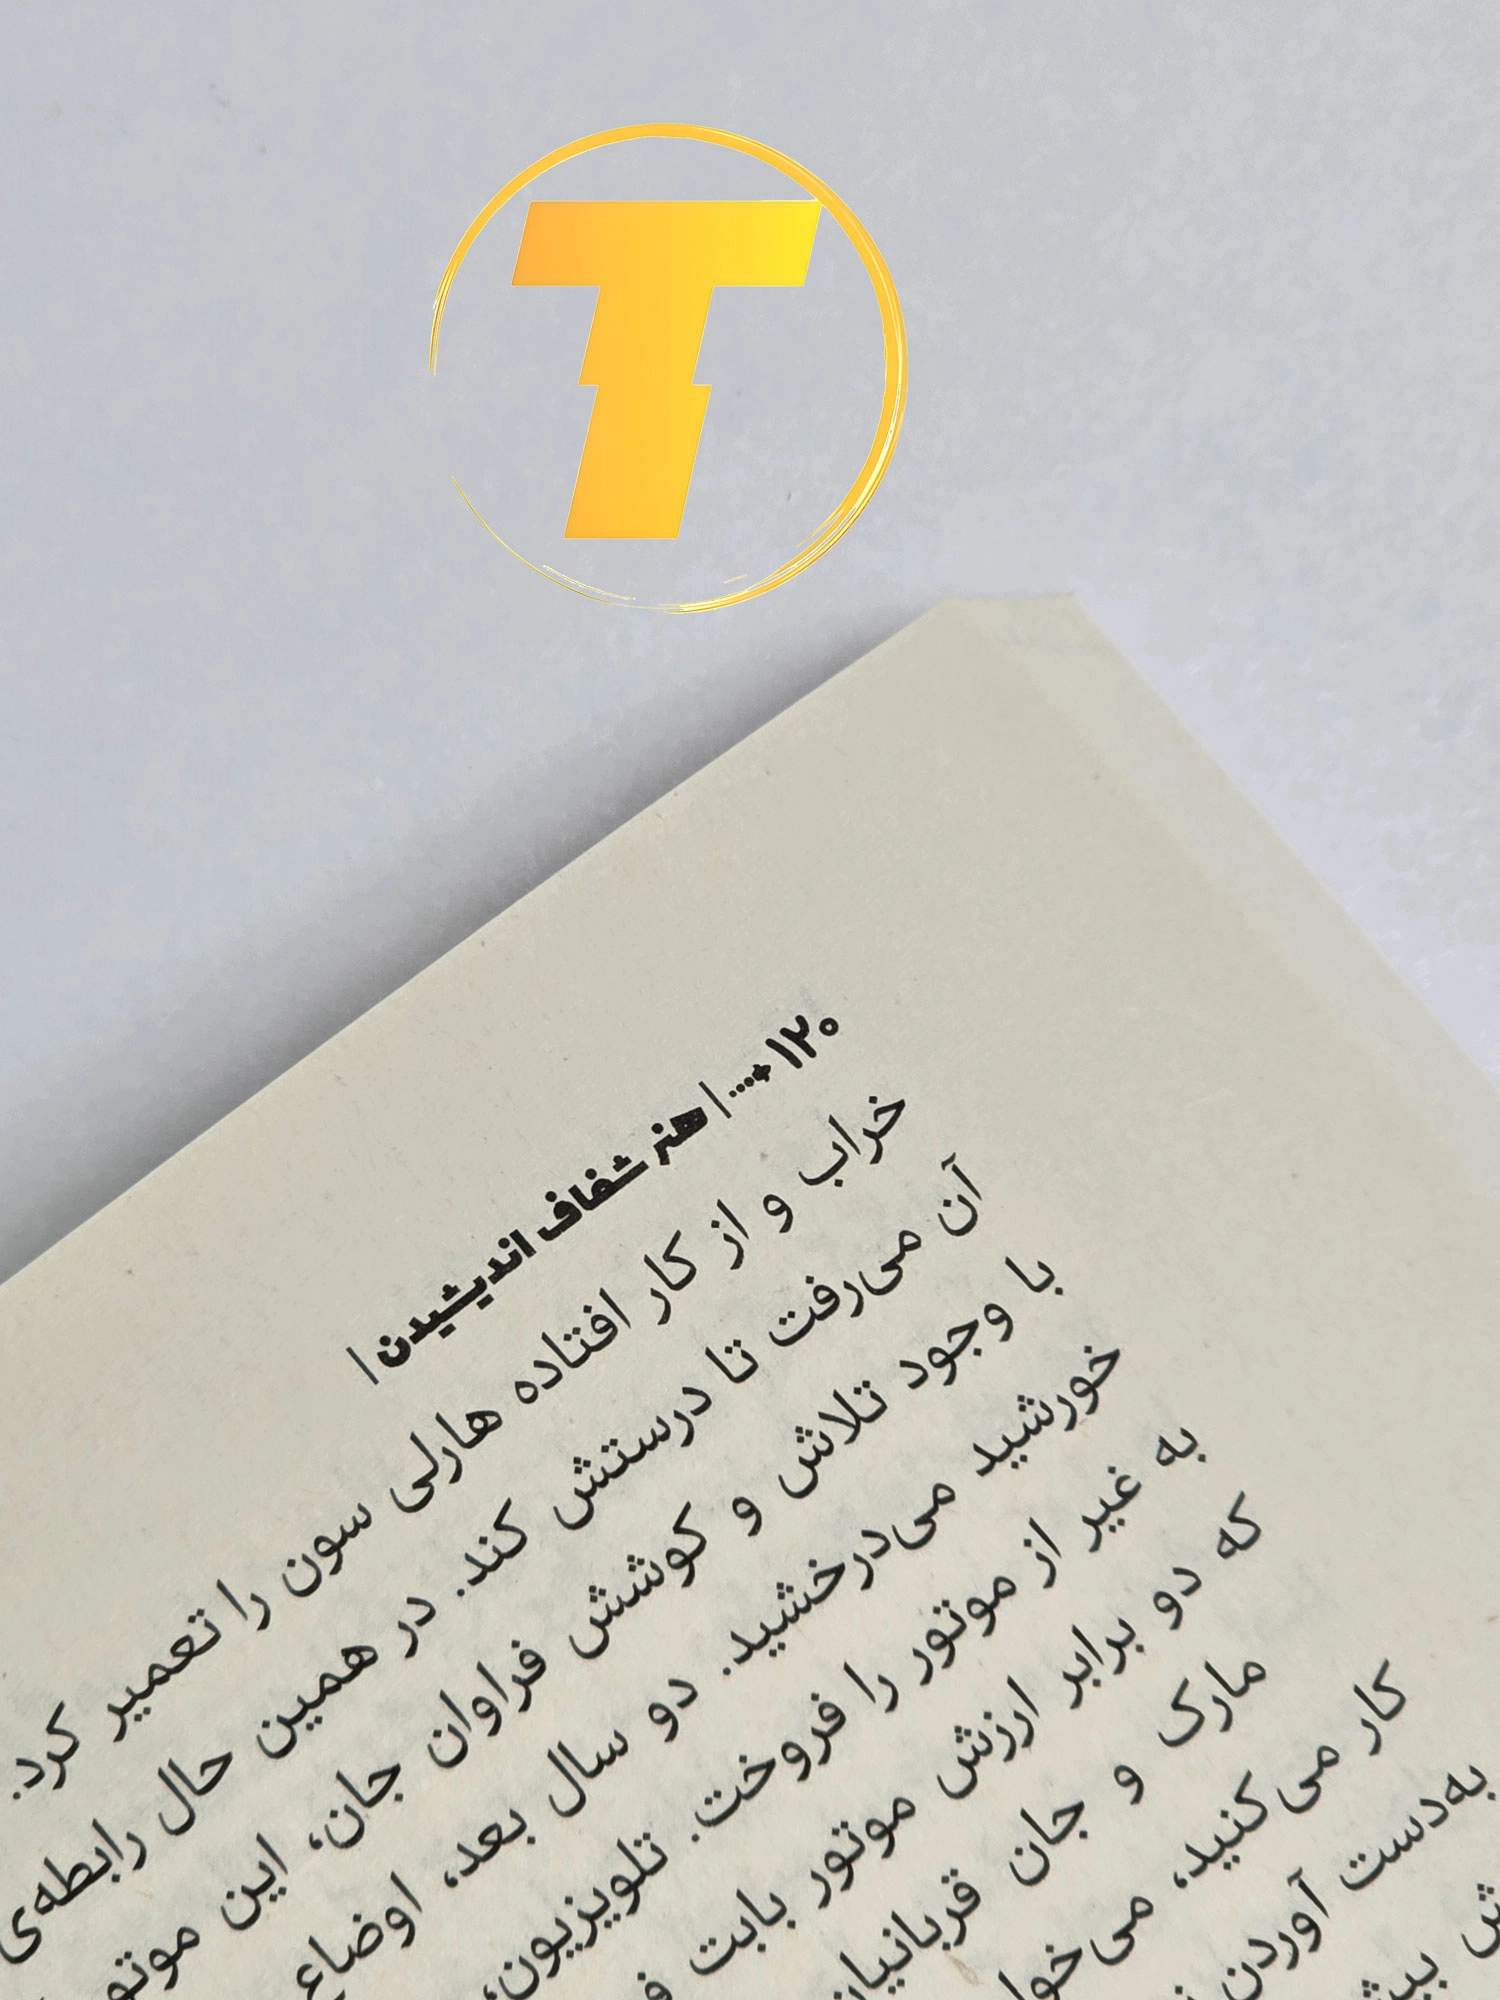 T
۱۲۰ | هنر شفاف اندیشیدن |
خراب و از کار افتاده هارلی سون را تعمیر کرد.
آن می‌رفت تا درستش کند. در همین حال رابطه‌ی
با وجود تلاش و کوشش فراوان جان، این موتور
خورشید می‌درخشید. دو سال بعد، اوضاع
به غیر از موتور را فروخت. تلویزیون،
که دو برابر ارزش موتور بابت
مارک و جان قربانیان
کار می‌کنید، می‌خوا
به‌دست آوردن